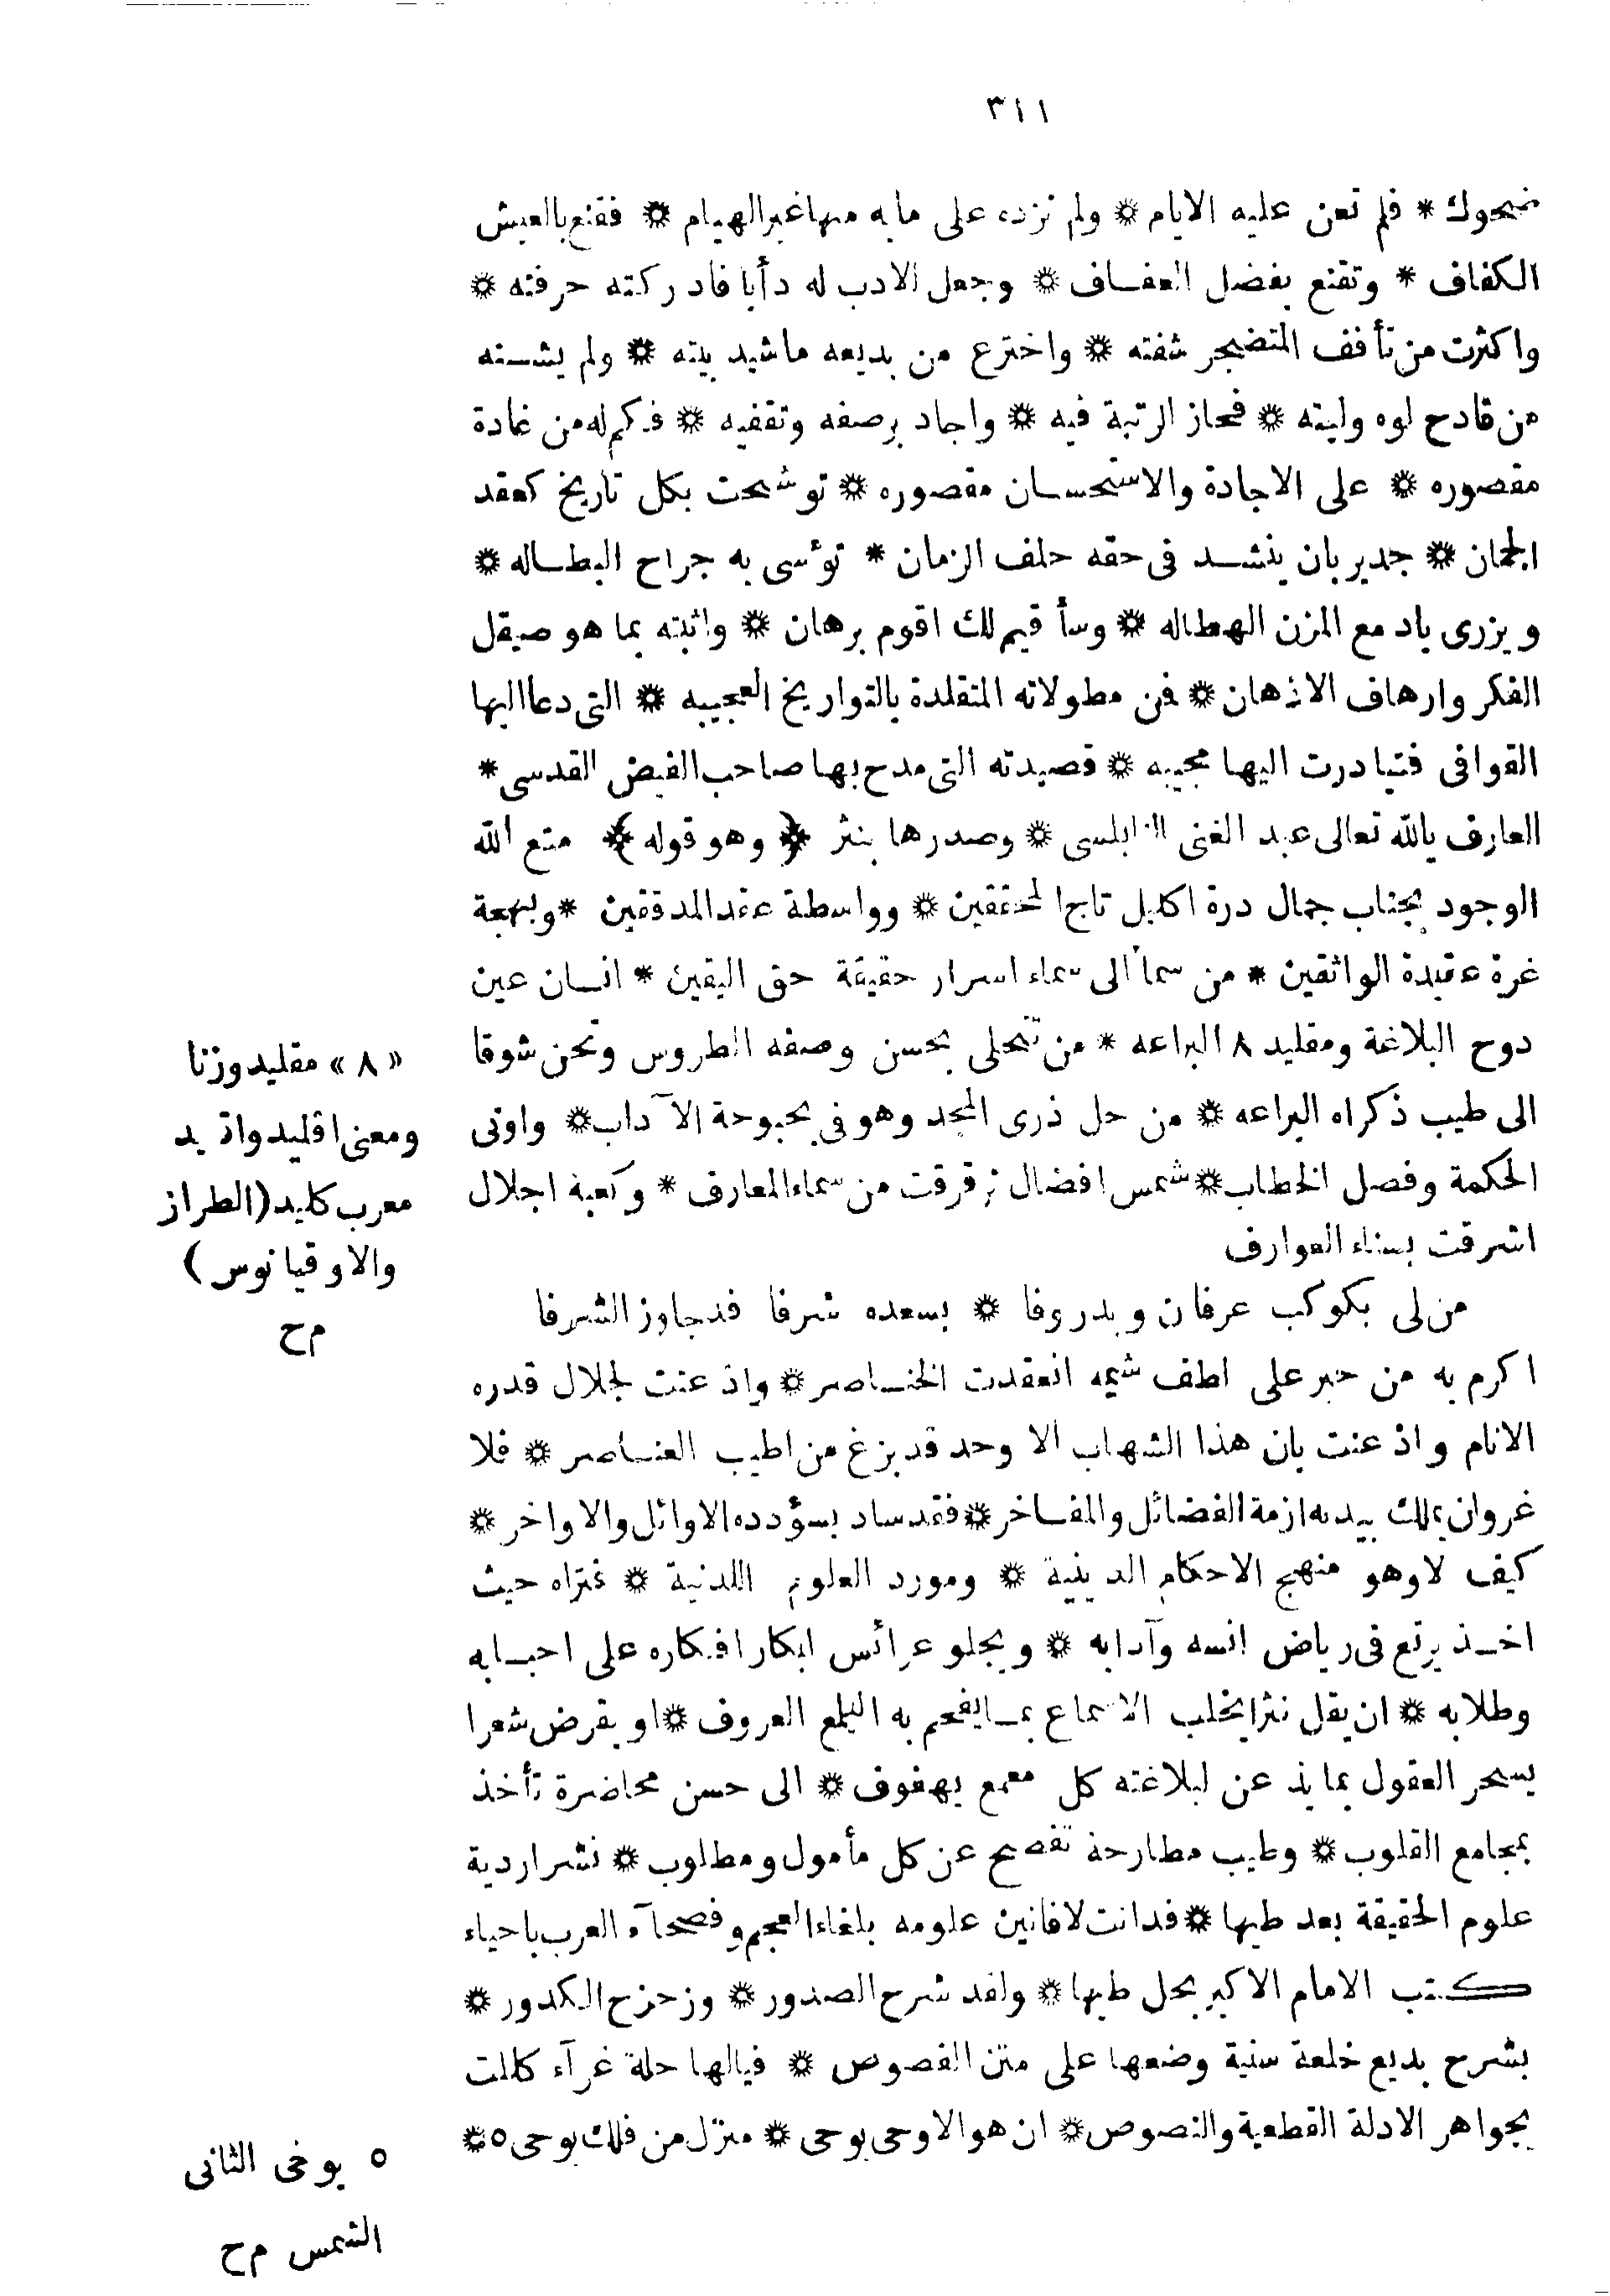 ٣١١
ضحوك * فلم تعن عليه الايام * ولم تزده على مابه منها غير الهيام * فقنع بالعيش
الكفاف * وتقنع بفضل العفاف * وجعل الادب له دأبا فادركته حرفته *
واكثرت من تأفف المتضجر شفته * واخترع من بديعه ماشيد بيته * ولم يشنه
من قادح لوه وليته * فحاز الرتبة فيه * واجاد برصفه وتقفيه * فكم له من غادة
مقصوره * على الاجادة والاستحسان مقصوره * توشحت بكل تاريخ كعقد
الجمان * جدير بان ينشد فى حقه حلف الزمان * توسى به جراح البطاله *
ويزرى بادمع المزن الهطاله * وسأقيم لك اقوم برهان * واثبته بما هو صيقل
الفكر وارهاف الاذهان * فمن مطولاته المتقلدة بالتواريخ العجيبه * التى دعا اليها
القوافى فتبادرت اليها مجيبه * قصيدته التى مدح بها صاحب الفيض القدسى *
العارف بالله تعالى عبد الغنى النابلسى * وصدرها بنثر ﴿ وهو قوله ﴾ متع الله
الوجود بجناب جمال درة اكليل تاج المحققين * وواسطة عقد المدققين * وبهجة
غرة عقيدة الواثقين * من سما الى سماء اسرار حقيقة حق اليقين * انسان عين
دوح البلاغة ومقليد ٨ البراعه * من تتحلى بحسن وصفه الطروس وتحن شوقا
الى طيب ذكراه اليراعه * من حل ذرى المجد وهو فى بحبوحة الآداب * واوتى
الحكمة وفصل الخطاب * شمس افضال ترقرقت من سماء المعارف * وكعبة اجلال
اشرقت بسناء العوارف
من لى بكوكب عرفان وبدر وفا * بسعده شرفا قد جاوز الشرفا
اكرم به من حبر على لطف شيمه انعقدت الخناصر * واذعنت لجلال قدره
الانام واذعنت بان هذا الشهاب الاوحد قد بزغ من اطيب العناصر * فلا
غروان يملك بيديه ازمة الفضائل والمفاخر * فقد ساد بسؤدده الاوائل والاواخر *
كيف لا وهو منهج الاحكام الدينية * ومورد العلوم اللدنية * فتراه حيث
اخذ يرتع فى رياض انسه وآدابه * ويجلو عرائس ابكار افكاره على احبابه
وطلابه * ان يقل نثرا يخلب الاسماع بما يفحم به البلمع العروف * او يقرض شعرا
يسحر العقول بما يذعن لبلاغته كل معمع يهفوف * الى حسن محاضرة تأخذ
بمجامع القلوب * وطيب مطارحة تفصح عن كل مأمول ومطلوب * نشر اردية
علوم الحقيقة بعد طيها * فدانت لافانين علومه بلغاء العجم وفصحآء العرب باحياء
كتب الامام الاكبر بحل طيها * ولقد شرح الصدور * وزحزح الكدور *
بشرح بديع خلعة سنية وضعها على متن الفصوص * فيالها حلة غرآء كللت
بجواهر الادلة القطعية والنصوص * ان هو الا وحى يوحى * منزل من فلك يوحى ٥ *
«٨» مقليد وزنا
ومعنى اقليد واقليد
معرب كليد (الطراز
والاوقيانوس)
م ح
٥ يوحى الثانى
الشمس م ح